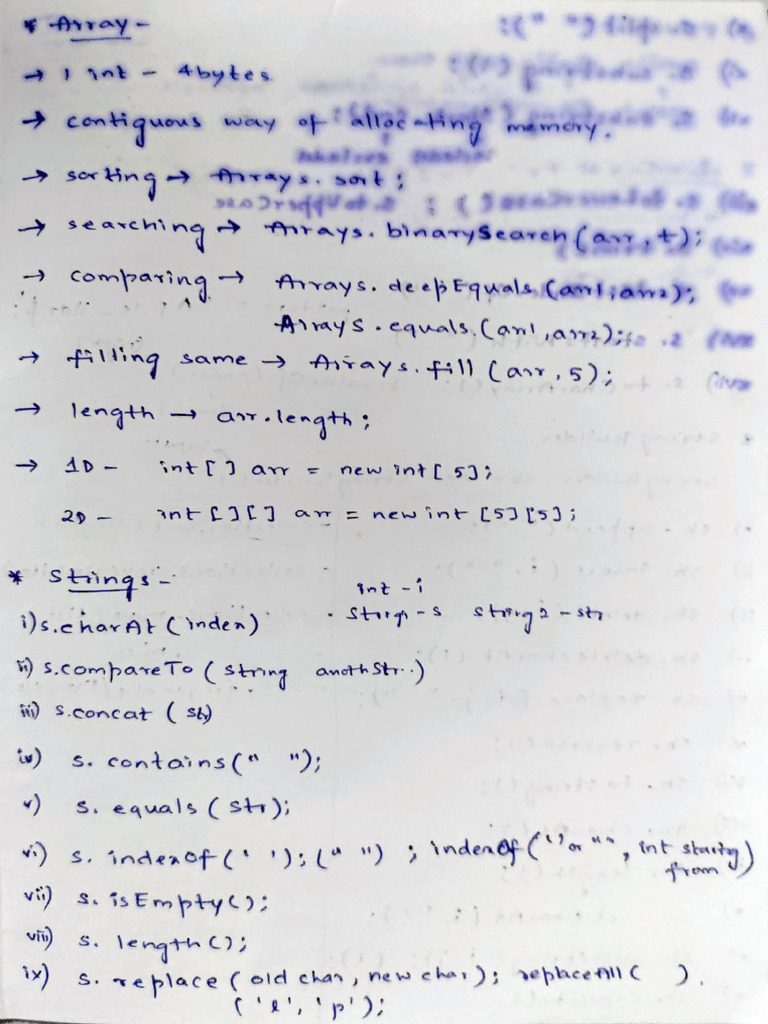 * Array -
→ 1 int - 4bytes
→ contiguous way of allocating memory.
→ sorting → Arrays.sort;
→ searching → Arrays.binarySearch(arr,t);
→ comparing → Arrays.deepEquals(arr1,arr2);
Arrays.equals(arr1,arr2);
→ filling same → Arrays.fill(arr,5);
→ length → arr.length;
→ 1D - int[] arr = new int[5];
2D - int[][] arr = new int[5][5];
* Strings -
int - i
String1 - s String2 - str
i) s.charAt(index)
ii) s.compareTo(String anothStr.)
iii) s.concat(str)
iv) s.contains(" ");
v) s.equals(str);
vi) s.indexOf(' ');(" ") ; indexOf(' ' or " ", int starting from)
vii) s.isEmpty();
viii) s.length();
ix) s.replace(old char, new char); replaceAll( ).
('l','p');